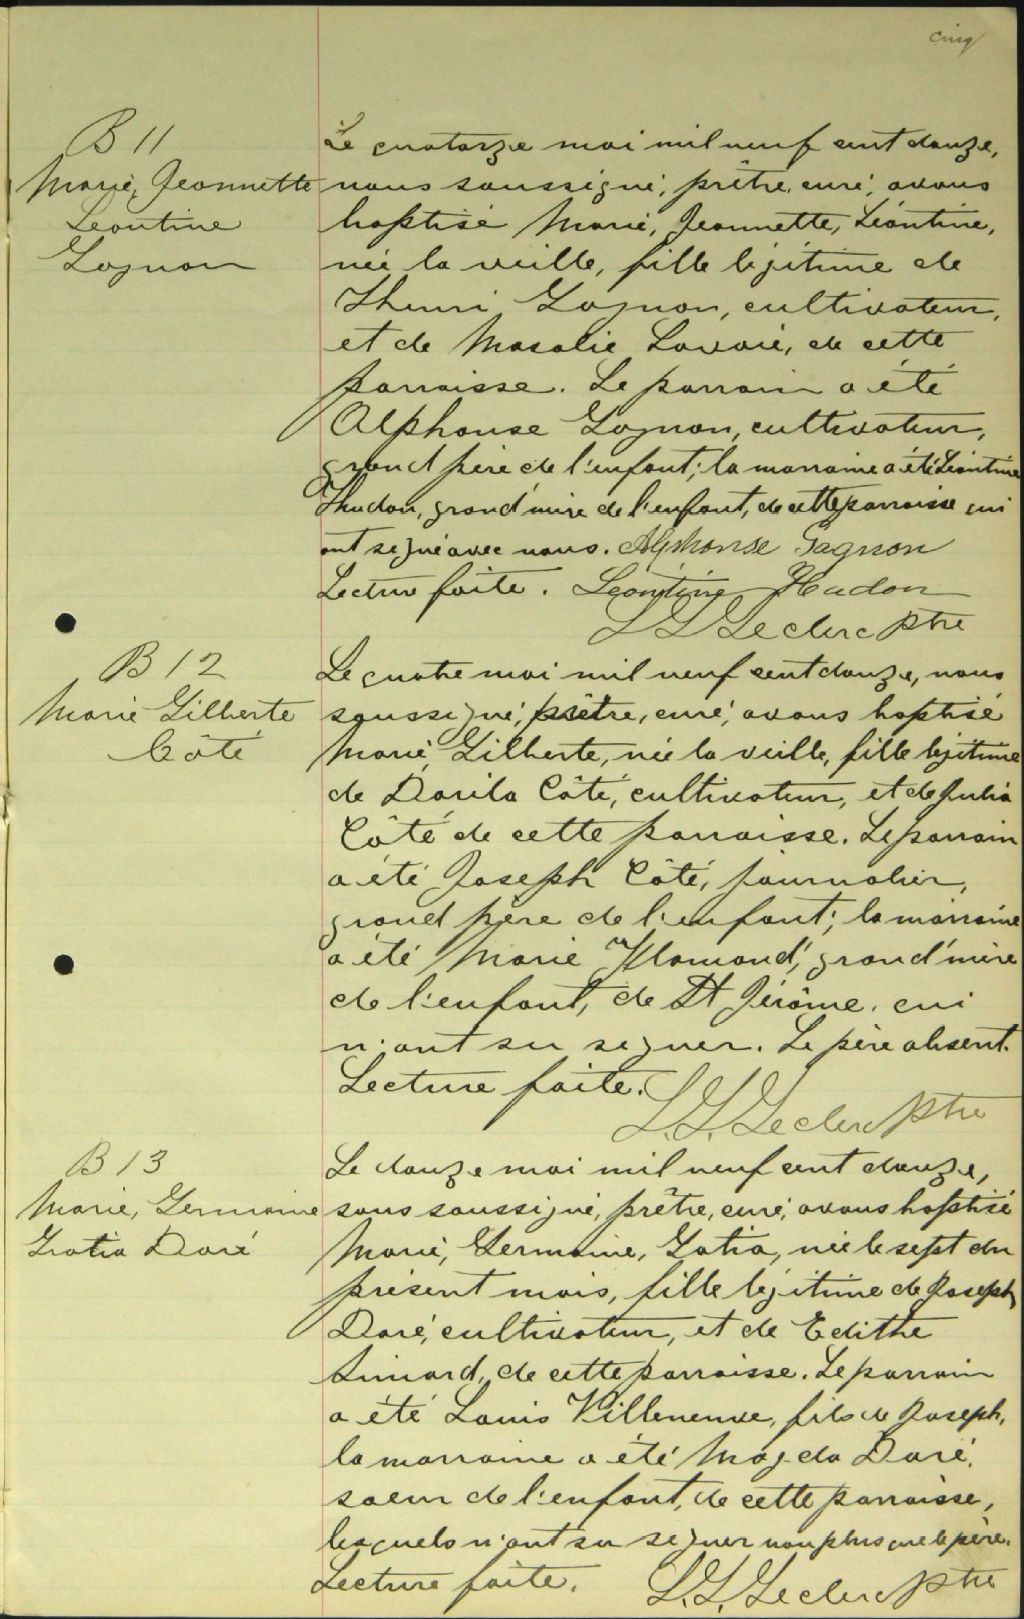 cinq
B 11
Marie, Jeannette
Léontine
Gagnon
Le quatorze mai mil neuf cent douze,
nous soussigné, prêtre, curé, avons
baptisé Marie, Jeannette, Léontine,
née la veille, fille légitime de
Thomas Gagnon, cultivateur,
et de Rosalie Lavoie, de cette
paroisse. Le parrain a été
Alphonse Gagnon, cultivateur,
grand père de l'enfant; la marraine a été Léontine
Hudon, grand'mère de l'enfant, de cette paroisse qui
ont signé avec nous. Alphonse Gagnon
Lecture faite. Léontine Hudon
L. G. Leclerc ptre
B 12
Marie Gilberte
Côté
Le quatre mai mil neuf cent douze, nous
soussigné, prêtre, curé, avons baptisé
Marie, Gilberte, née la veille, fille légitime
de Darila Côté, cultivateur, et de Julia
Côté de cette paroisse. Le parrain
a été Joseph Côté, journalier,
grand père de l'enfant; la marraine
a été Marie grand'mère
de l'enfant, de St Jérôme, qui
n'ont su signer. Le père absent.
Lecture faite.
L. G. Leclerc ptre
B 13
Marie, Germaine
Gratia Doré
Le douze mai mil neuf cent douze,
sous soussigné, prêtre, curé, avons baptisé
Marie, Germaine, Gatia, née le sept du
présent mois, fille légitime de Joseph
Doré, cultivateur, et de Edithe
Simard, de cette paroisse. Le parrain
a été Louis Villeneuve, fils de Joseph,
la marraine a été Magda Doré,
soeur de l'enfant, de cette paroisse,
lesquels n'ont su signer non plus que le père.
Lecture faite.
L. G. Leclerc ptre